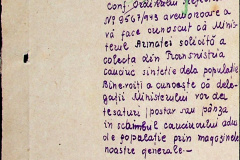 conf. Ordinului
No 8567/943 aveți onoare a
vă face cunoscut că Minis-
terul Armatei solicită a
colecta din Transnistria
cauciuc sintetic dela populație
Binevoiți a cunoaște că dele-
gații Ministerului vor da
țesături /postav sau pânză
în scâmbul cauciucului adus
de populație prin magazinele
noastre generale.—